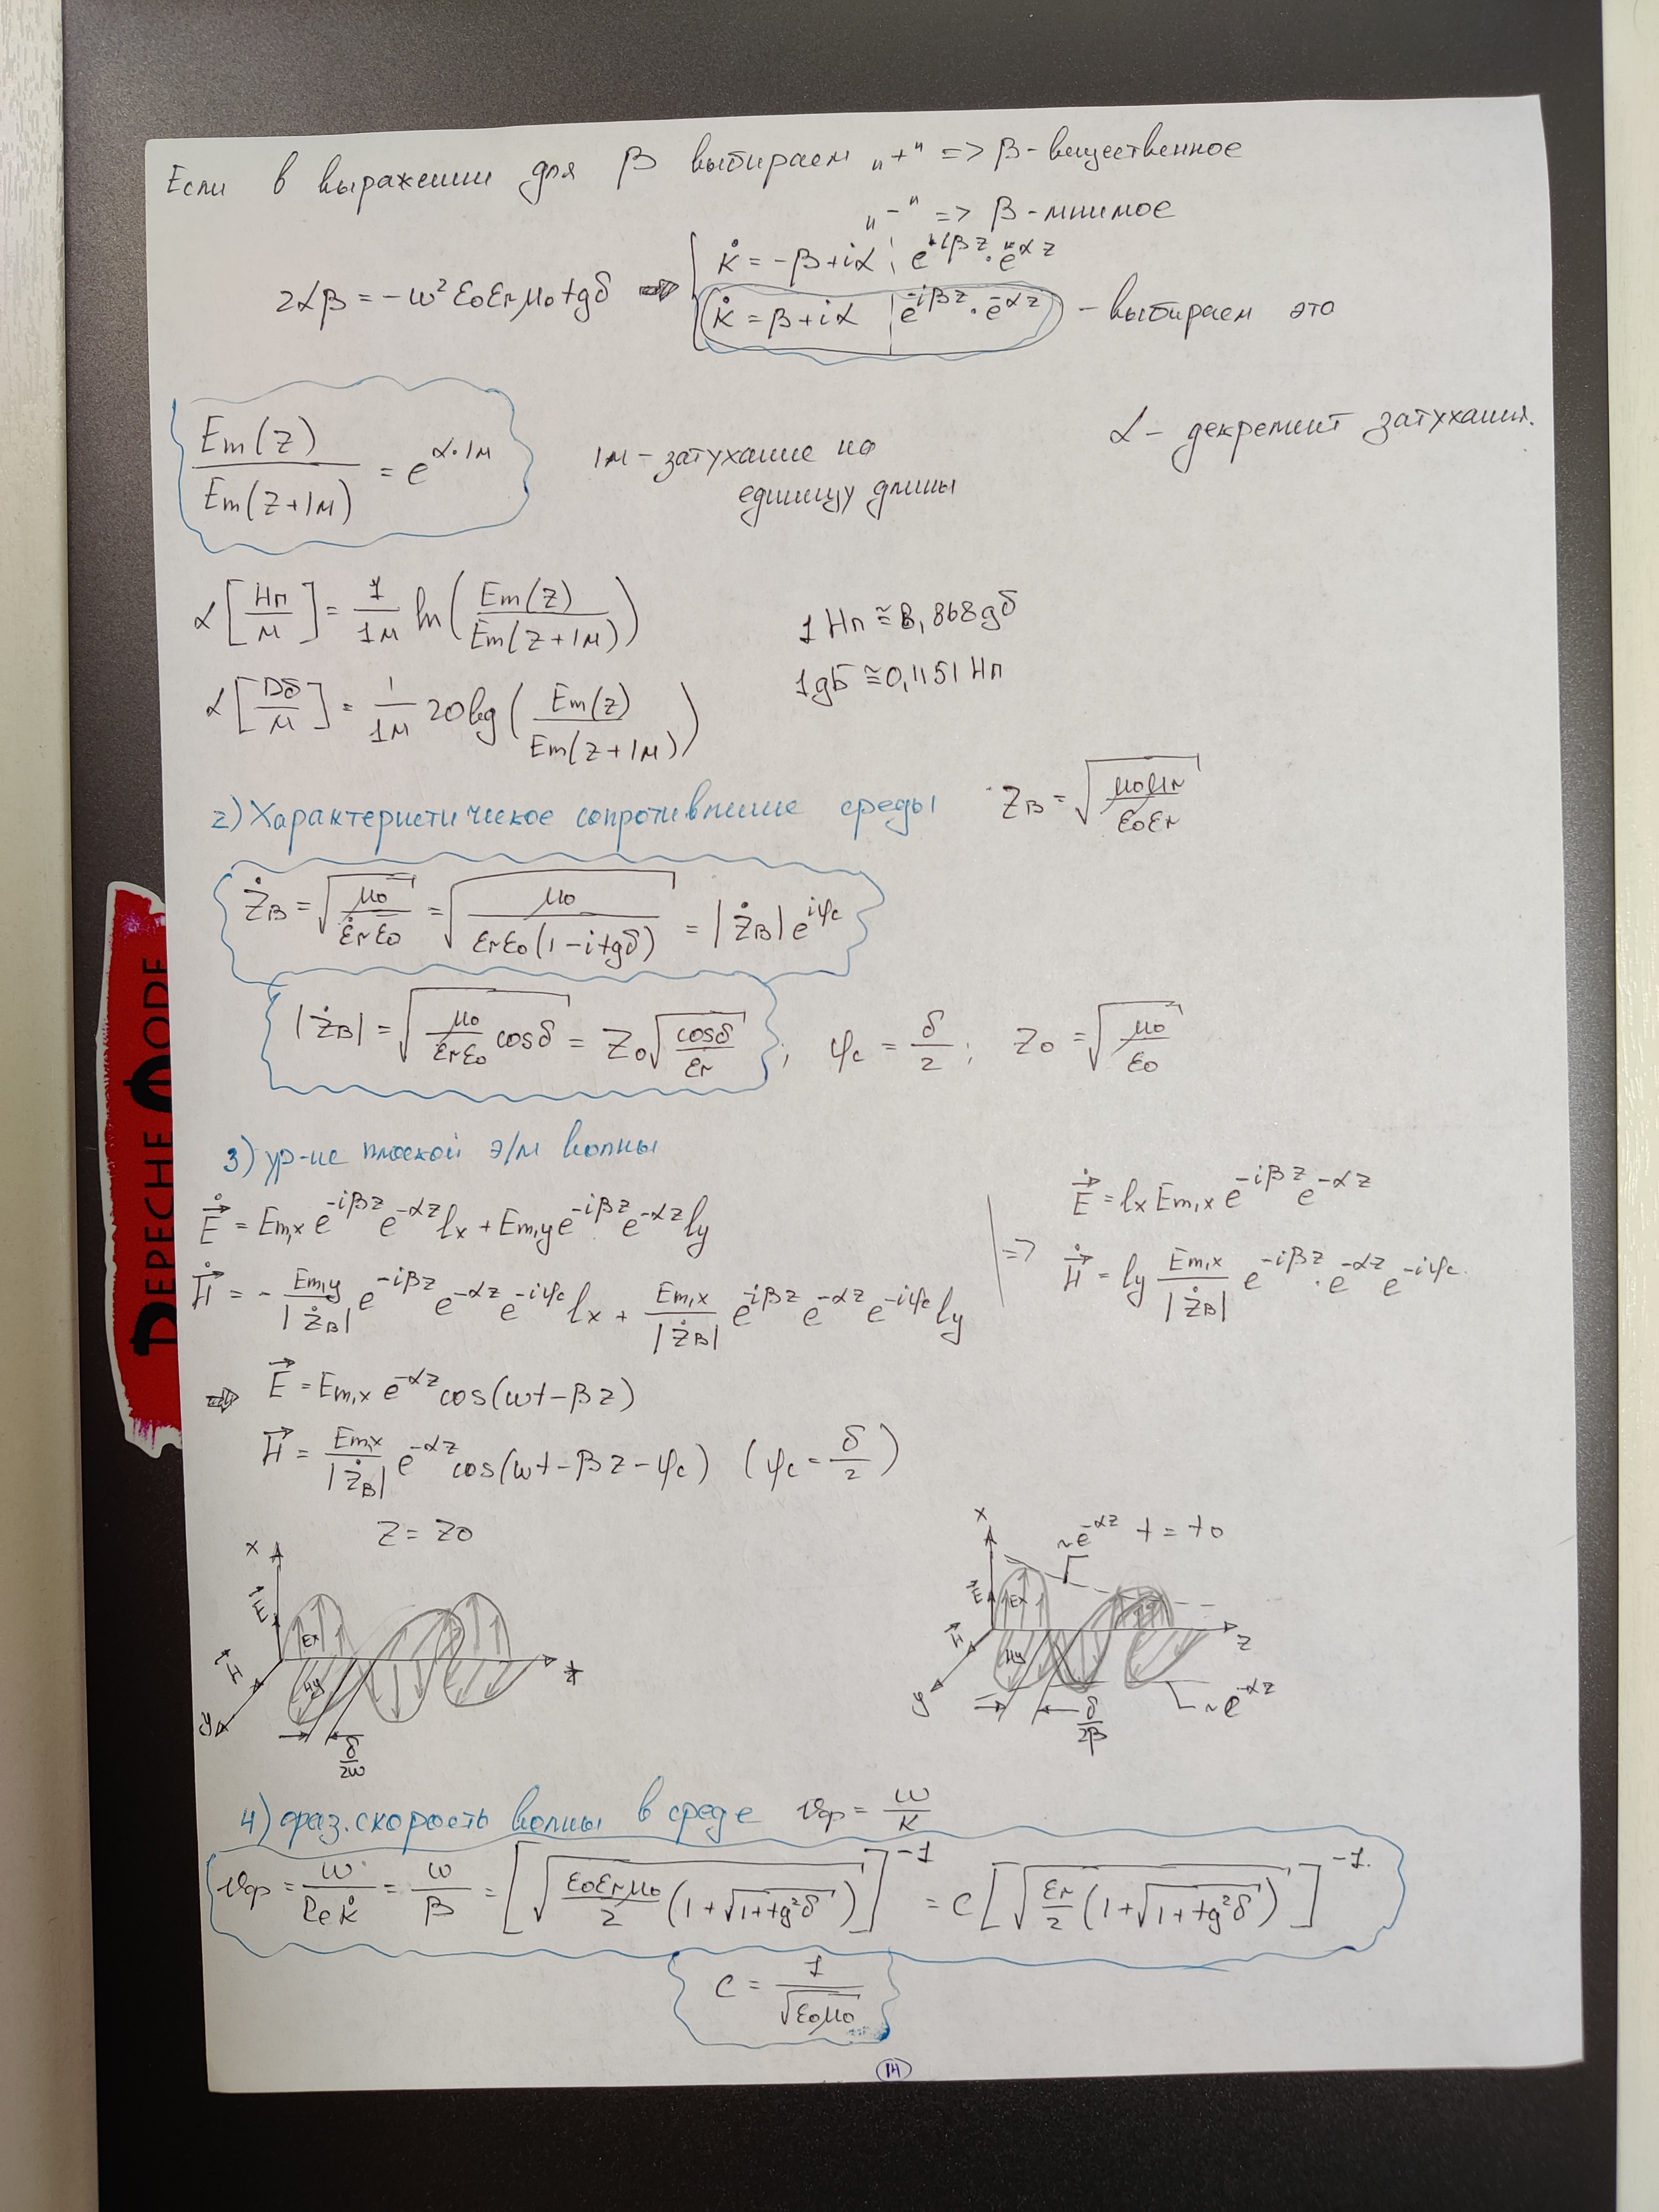 Если в выражении для β выбираем „+" => β-вещественное
„-" => β-мнимое
2αβ = -ω² ε₀εᵣμ₀ tgδ => k̇ = -β+iα ¦ e^{+iβz}·e^{+αz}
k̇ = β+iα | e^{-iβz}·e^{-αz} - выбираем это
Em(z)/Em(z+1м) = e^{α·1м}
1м - затухание на
единицу длины
α - декремент затухания.
α[Нп/м] = 1/1м ln(Em(z)/Em(z+1м))
1 Нп ≅ 8,868 дб
α[Дб/м] = 1/1м 20 lg(Em(z)/Em(z+1м))
1 дБ ≅ 0,1151 Нп
2) Характеристическое сопротивление среды Zв = √(μ₀μᵣ/ε₀εᵣ)
Żв = √(μ₀/ε̇ᵣε₀) = √(μ₀/εᵣε₀(1-i tgδ)) = |Żв| e^{iφc}
|Żв| = √(μ₀/εᵣε₀ cosδ) = Z₀√(cosδ/εᵣ) ; φc = δ/2 ; Z₀ = √(μ₀/ε₀)
3) ур-ие плоской э/м волны
E = Em,x e^{-iβz} e^{-αz} lx + Em,y e^{-iβz} e^{-αz} ly
H = - Em,y/|Żв| e^{-iβz} e^{-αz} e^{-iφc} lx + Em,x/|Żв| e^{-iβz} e^{-αz} e^{-iφc} ly
=> E = lx Em,x e^{-iβz} e^{-αz}
H = ly Em,x/|Żв| e^{-iβz}·e^{-αz} e^{-iφc}
=> E = Em,x e^{-αz} cos(ωt-βz)
H = Em,x/|Żв| e^{-αz} cos(ωt-βz-φc) (φc = δ/2)
z = z₀
x
E
Ex
H
Hy
y
z
δ/2ω
x
~e^{-αz} t = t₀
E
Ex
H
Hy
y
z
δ/2β
~e^{-αz}
4) фаз. скорость волны в среде vф = ω/k
vф = ω/Re k̇ = ω/β = [√(ε₀εᵣμ₀/2 (1+√(1+tg²δ)))]^{-1} = c[√(εᵣ/2 (1+√(1+tg²δ)))]^{-1}
c = 1/√(ε₀μ₀)
14
DEPECHE MODE